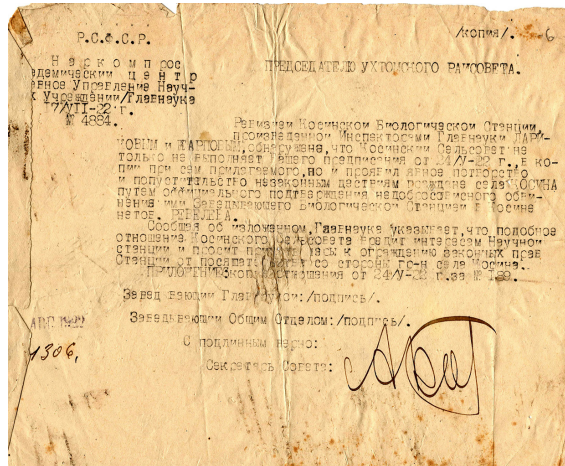 /копия/.
6
Р.С.Ф.С.Р.
Наркомпрос
адемический центр
авное Управление Науч-
х Учреждении/Главнаука
17/VII-22 г.
№ 4884.
ПРЕДСЕДАТЕЛЮ УХТОМСКОГО РАИСОВЕТА.
Ревизиеи Косинскои Биологическои Станции,
произведеннои Инспекторами Главнауки ЛАРИ-
КОВЫМ и обнаружена, что Косинскии Сельсовет не
только не выполняет Вашего предписания от 24/V-22 г., в ко-
пии при сем прилагаемого, но и проявил явное потворство
и попустительство незаконным деиствиям граждане села КОСИНА
путем оффициального подтверждения недобросовестного обви-
нения ими Заведывающего Биологическои Станциеи в Косине
Сообщая об изложенном, Главнаука указывает, что подобное
отношение Косинского Сельсовета вредит интересам Научнои
станции и просит к ограждению законных прав
Станции от со стороны гр-н села Косина.
ПРИЛОЖЕНИЕ: копия отношения от 24/V-22 г. за №
Завед вающии Главнаукои:/подпись/.
Заведывающии Общим Отделом:/подпись/.
АВГ 1922
1306,
С подлинным верно:
Секретарь Совета: